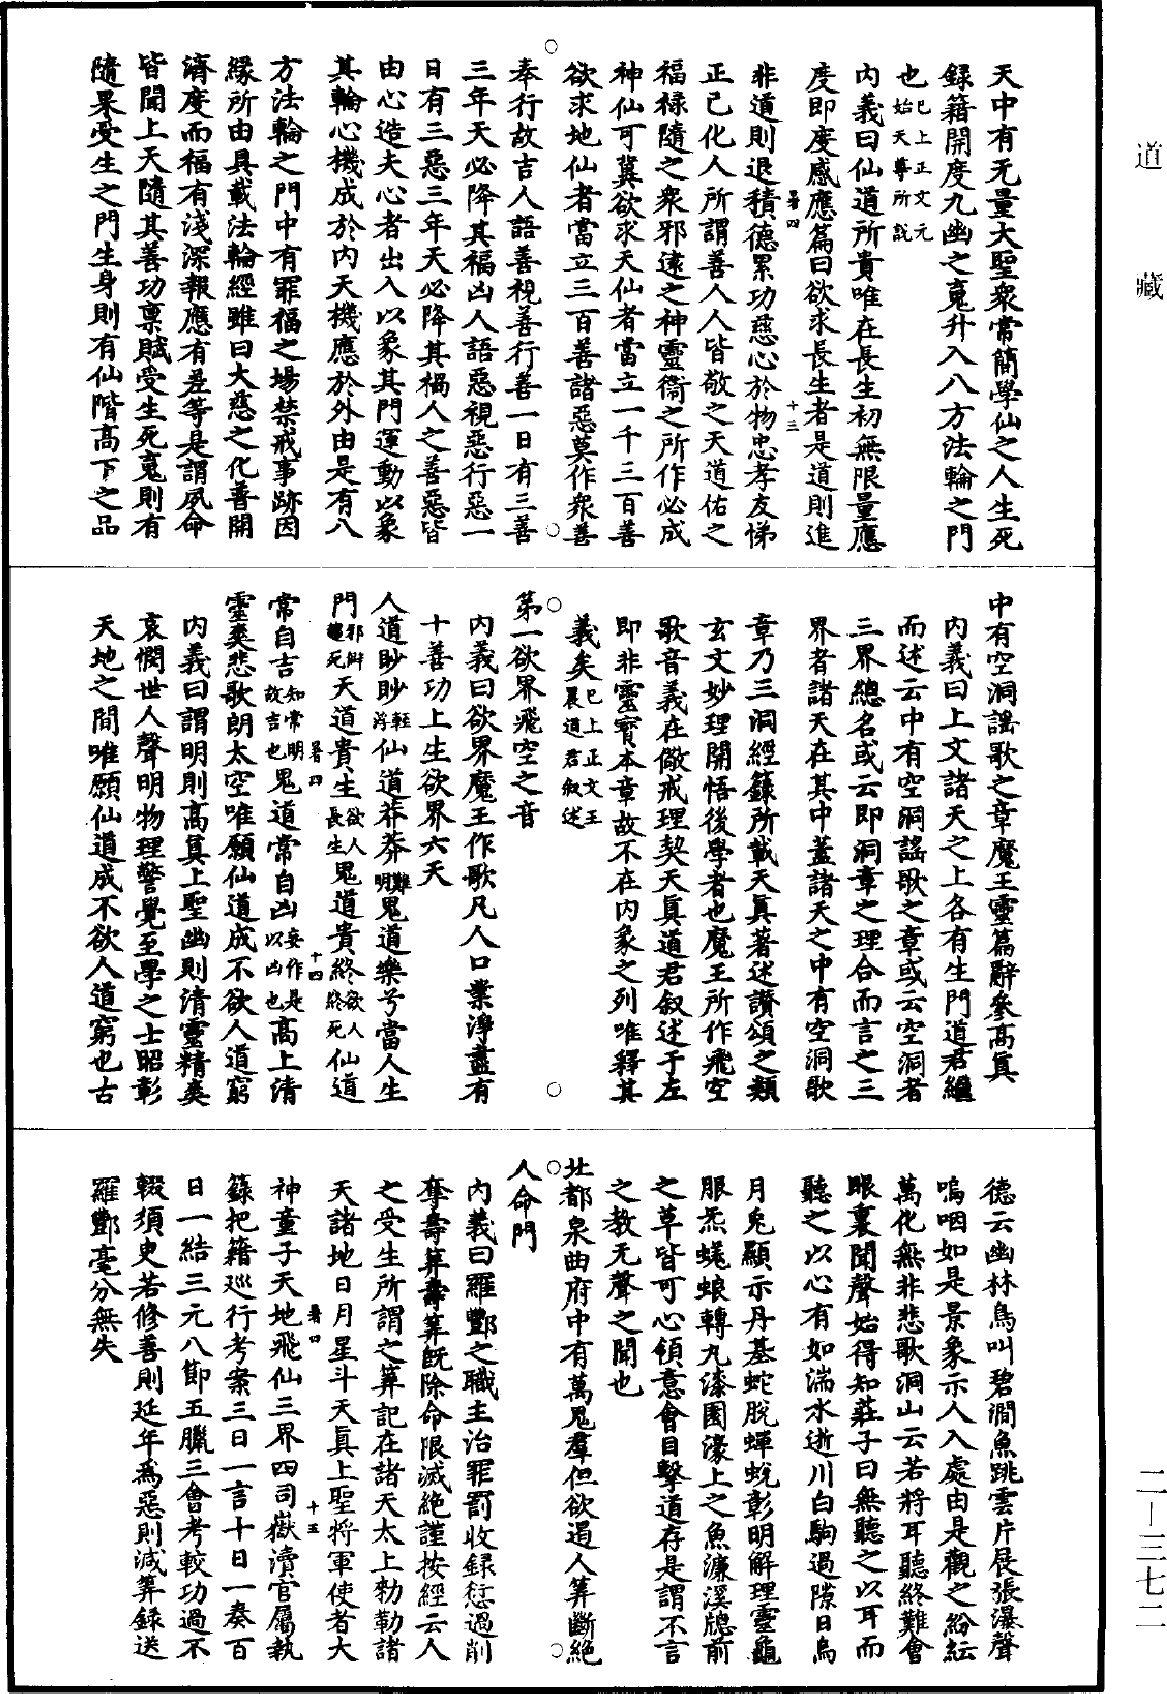 道藏
天中有无量大聖衆常簡學仙之人生死
録籍開度九幽之䰟升入八方法輪之門
也已上正文元始天尊所説
内義曰仙道所貴唯在長生初無限量應
度即度感應篇曰欲求長生者是道則進
暑四 十三
非道則退積德累功慈心於物忠孝友悌
正己化人所謂善人人皆敬之天道佑之
福禄隨之衆邪遠之神靈衞之所作必成
神仙可冀欲求天仙者當立一千三百善
欲求地仙者當立三百善諸惡莫作衆善
奉行故吉人語善視善行善一日有三善
三年天必降其福凶人語惡視惡行惡一
日有三惡三年天必降其禍人之善惡皆
由心造夫心者出入以象其門運動以象
其輪心機成於内天機應於外由是有八
方法輪之門中有罪福之場禁戒事跡因
緣所由具載法輪經雖曰大慈之化普開
濟度而福有淺深報應有差等是謂夙命
皆開上天隨其善功禀賦受生死䰟則有
隨果受生之門生身則有仙階高下之品
中有空洞謡歌之章魔王靈篇辭參高真
内義曰上文諸天之上各有生門道君繼
而述云中有空洞謡歌之章或云空洞者
三界總名或云即洞章之理合而言之三
界者諸天在其中蓋諸天之中有空洞歌
章乃三洞經籙所載天真著述讚頌之類
玄文妙理開悟後學者也魔王所作飛空
歌音義在儆戒理契天真道君叙述于左
即非靈寳本章故不在内象之列唯釋其
義矣已上正文王晨道君叙述
第一欲界飛空之音
内義曰欲界魔王作歌凡人口業淨盡有
十善功上生欲界六天
人道眇眇輕浮仙道莽莽難明鬼道樂兮當人生
門邪辯趨死天道貴生欲人長生鬼道貴終欲人終死仙道
暑四 十四
常自吉知常明故吉也鬼道常自凶妄作是以凶也高上清
靈爽悲歌朗太空唯願仙道成不欲人道窮
内義曰謂明則高真上聖幽則清靈精爽
哀憫世人聲明物理警覺至學之士昭彰
天地之間唯願仙道成不欲人道窮也古
德云幽林鳥叫碧澗魚跳雲片展張瀑聲
嗚咽如是景象示人入處由是觀之紛紜
萬化無非悲歌洞山云若將耳聽終難會
眼裏聞聲始得知莊子曰無聽之以耳而
聽之以心有如湍水逝川白駒過隙日烏
月兔顯示丹基蛇脱蟬蛻彰明解理靈龜
服炁蜣蜋轉丸漆園濠上之魚濂溪牕前
之草皆可心領意會目擊道存是謂不言
之教无聲之聞也
北都泉曲府中有萬鬼羣但欲遏人筭斷絶
人命門
内義曰羅酆之職主治罪罰收録愆過削
奪壽筭壽筭既除命限滅絶謹按經云人
之受生所謂之筭記在諸天太上勑勒諸
天諸地日月星斗天真上聖將軍使者大
暑四 十五
神童子天地飛仙三界四司嶽瀆官屬執
籙把籍巡行考案三日一言十日一奏百
日一結三元八節五臘三會考較功過不
輟須臾若修善則延年爲惡則減筭録送
羅酆毫分無失
二—三七二